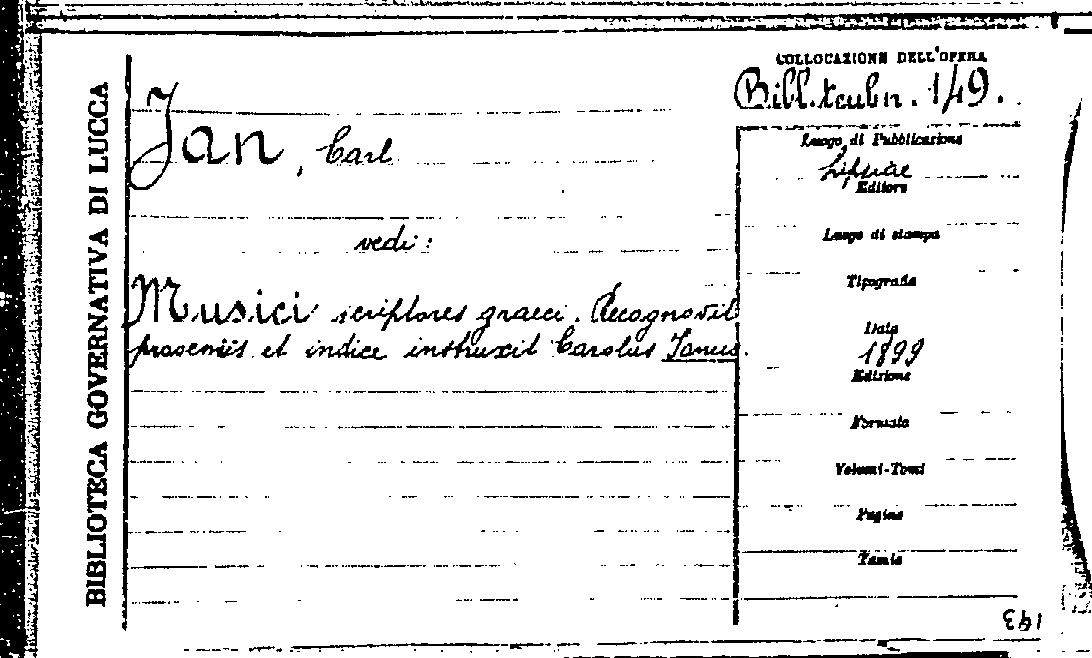 BIBLIOTECA GOVERNATIVA DI LUCCA
COLLOCAZIONE DELL'OPERA
Bibl. teubn. 149.
Jan, Carl
vedi:
Musici scriptores graeci. Recognovit
prooemiis et indice instruxit Carolus Janus.
Luogo di Pubblicazione
Lipsiae
Editore
Luogo di stampa
Tipografia
Data
1899
Edizione
Formato
Volumi-Tomi
Pagine
Tavole
193